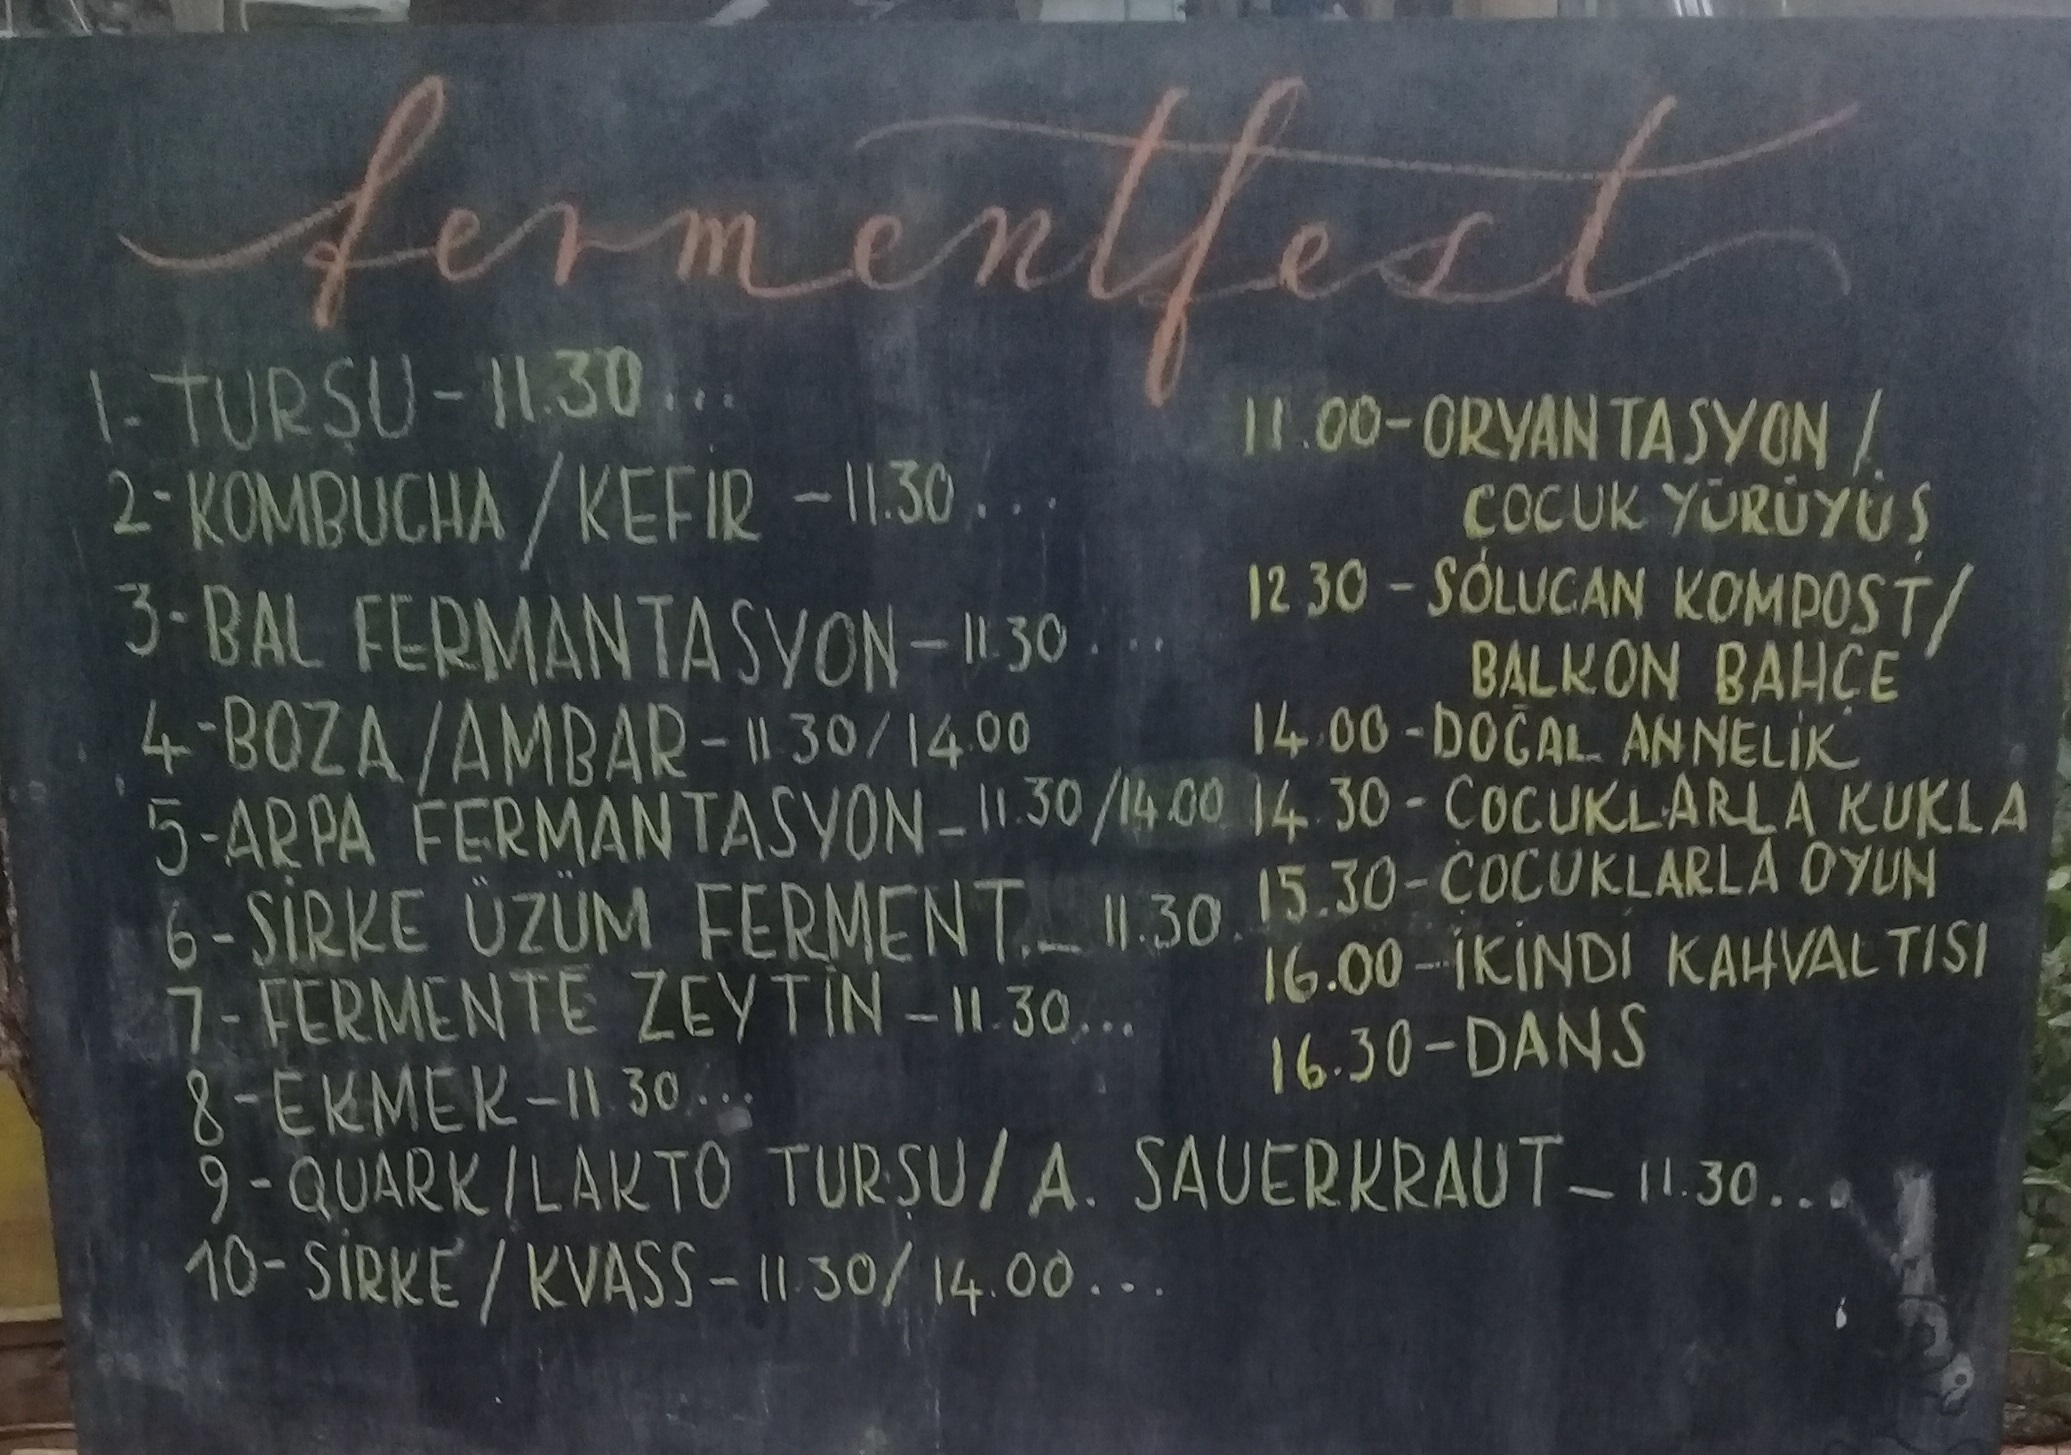 fermentfest
1- TURŞU - 11.30 ...
2- KOMBUCHA / KEFİR - 11.30 ...
3- BAL FERMANTASYON - 11.30 ...
4- BOZA / AMBAR - 11 30 / 14.00
5- ARPA FERMANTASYON - 11.30 / 14.00
6- SİRKE ÜZÜM FERMENT. - 11.30.
7- FERMENTE ZEYTİN - 11.30...
8- EKMEK - 11 30...
9- QUARK / LAKTO TURŞU / A. SAUERKRAUT - 11.30...
10- SİRKE / KVASS - 11.30 / 14.00...
11.00 - ORYANTASYON /
ÇOCUK YÜRÜYÜŞ
12 30 - SOLUCAN KOMPOST /
BALKON BAHÇE
14.00 - DOĞAL ANNELİK
14.30 - ÇOCUKLARLA KUKLA
15.30 - ÇOCUKLARLA OYUN
16.00 - İKİNDİ KAHVALTISI
16.30 - DANS